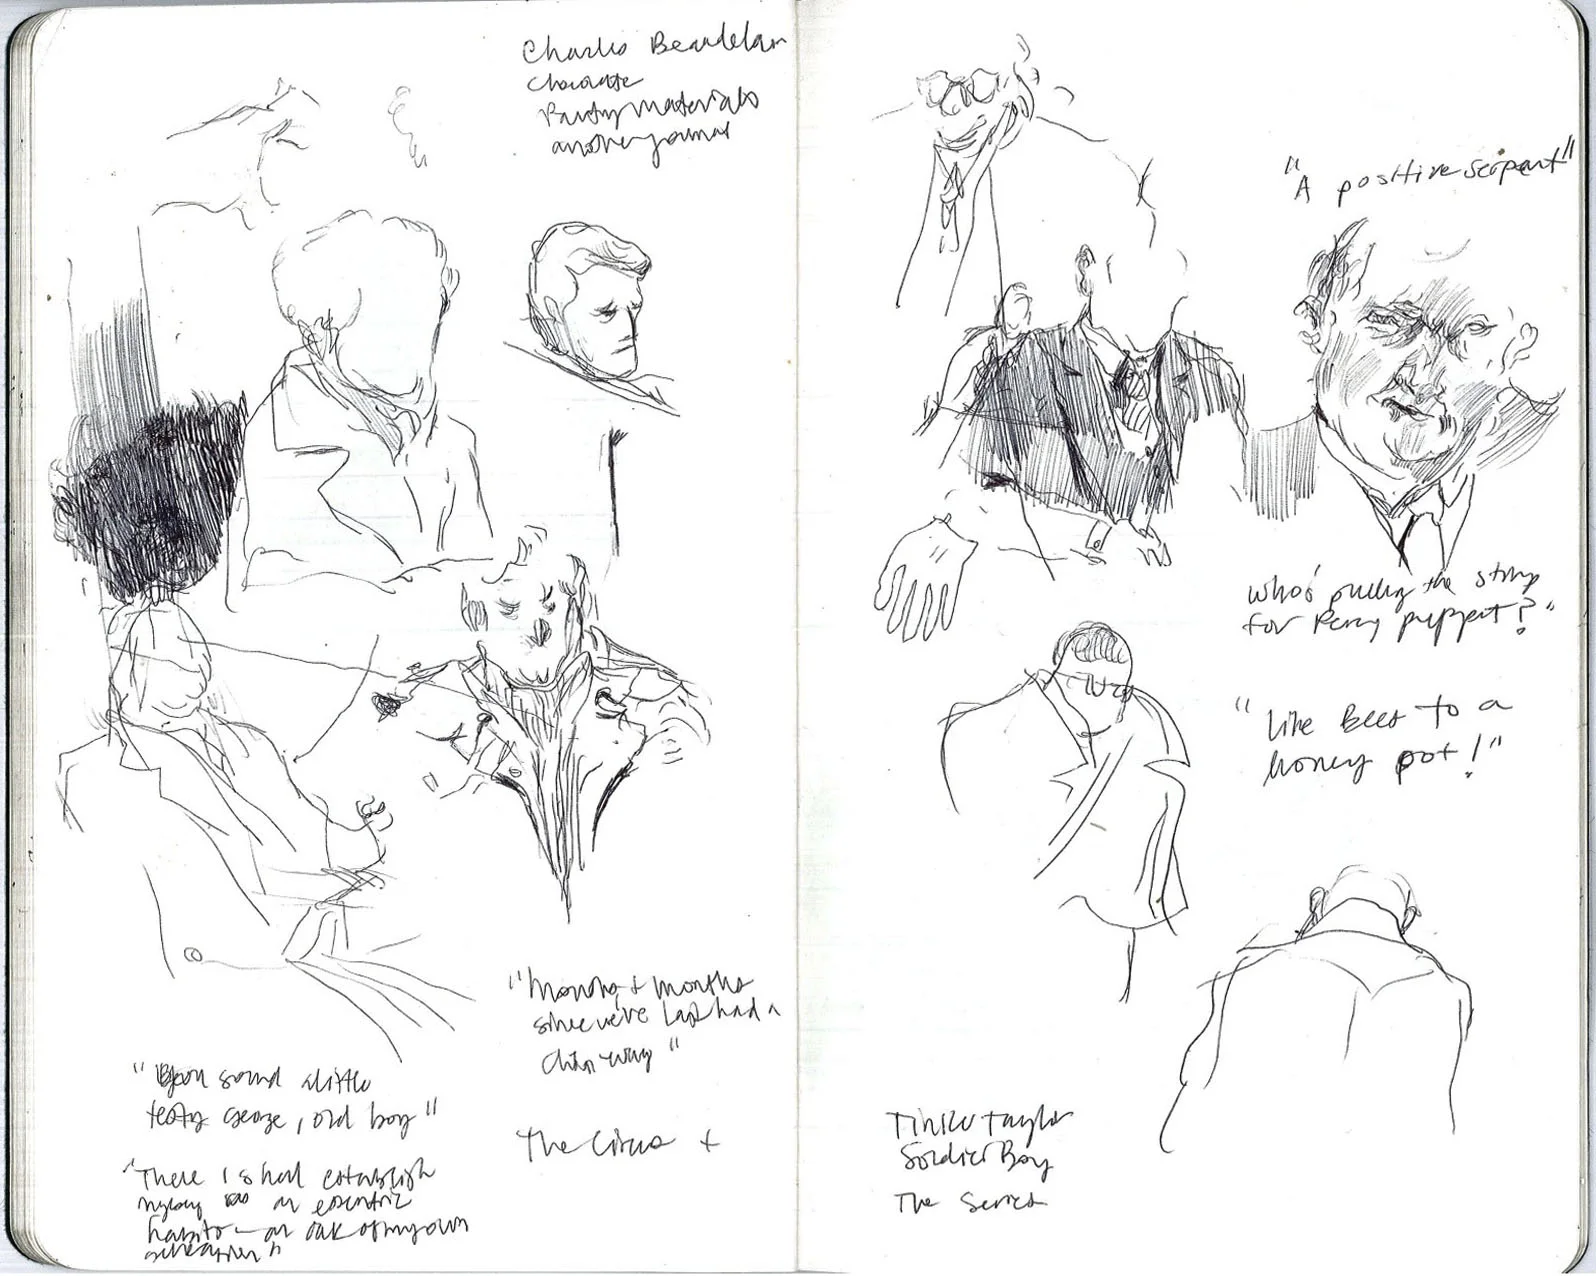 Charles Beaudelair
Chocolate
Party materials
another journal
"months + months
since we've last had a
chin-wag"
"You sound a little
testy George, old boy"
The Circus +
"There I shall establish
myself as an eccentric
habits — an oak of my own
"A positive serpent"
who's pulling the string
for Percy puppet?"
"like Bees to a
honey pot!"
Tinker Taylor
Soldier Boy
The Series